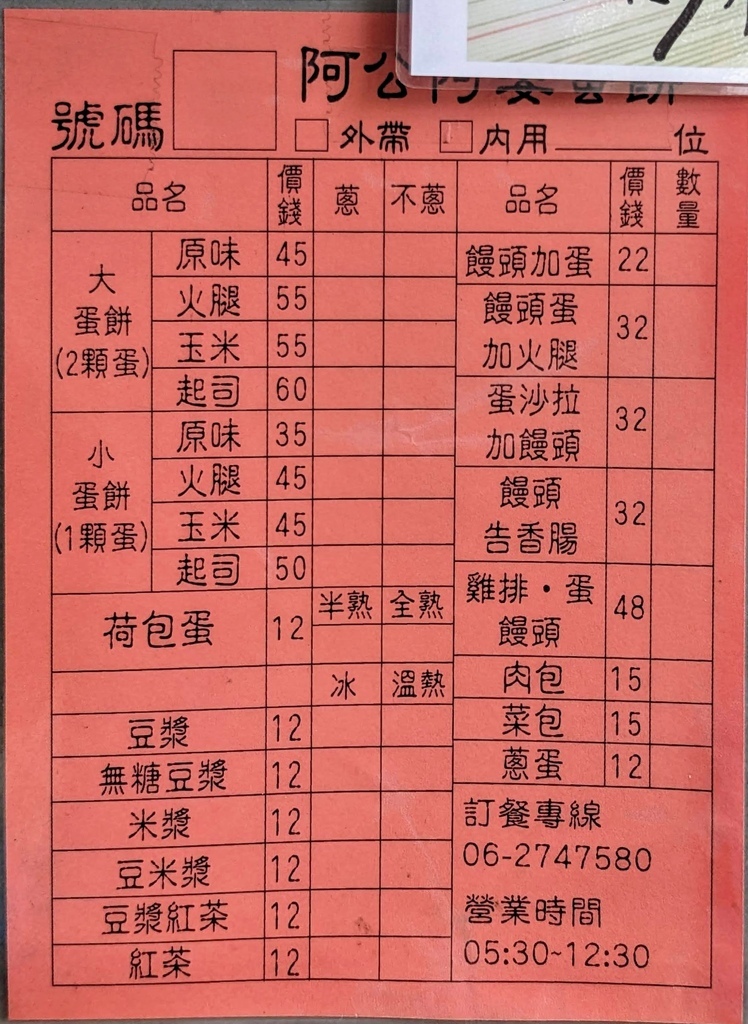 阿公阿婆蛋餅
號碼
外帶 內用 位
品名 價錢 蔥 不蔥
大蛋餅(2顆蛋)
原味 45
火腿 55
玉米 55
起司 60
小蛋餅(1顆蛋)
原味 35
火腿 45
玉米 45
起司 50
荷包蛋 12 半熟 全熟
冰 溫熱
豆漿 12
無糖豆漿 12
米漿 12
豆米漿 12
豆漿紅茶 12
紅茶 12
品名 價錢 數量
饅頭加蛋 22
饅頭蛋
加火腿 32
蛋沙拉
加饅頭 32
饅頭
告香腸 32
雞排·蛋
饅頭 48
肉包 15
菜包 15
蔥蛋 12
訂餐專線
06-2747580
營業時間
05:30~12:30